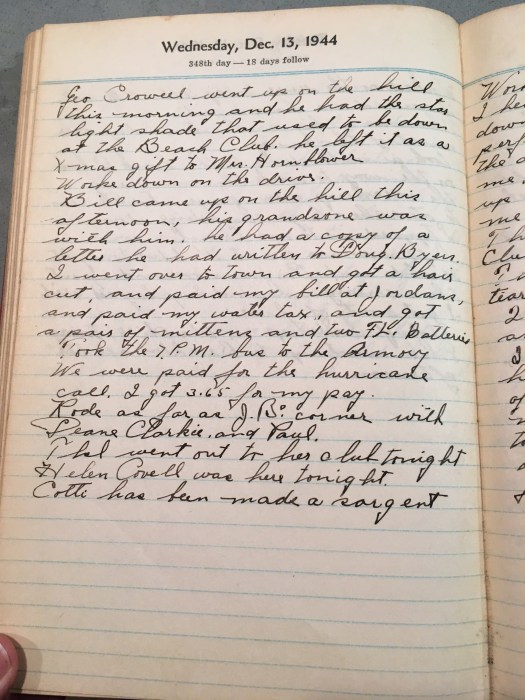 Wednesday, Dec. 13, 1944
348th day — 18 days follow
Geo Crowell went up on the hill
this morning and he had the star
light shade that used to be down
at the Beach Club. he left it as a
X-mas gift to Mrs. Hornblower
Worke down on the drive.
Bill came up on the hill this
afternoon, his grandsone was
with him. he had a copy of a
letter he had written to Doug. Byers.
I went over to town and got a hair
cut, and paid my bill at Jordans,
and paid my water tax, and got
a pair of mittens and two FL. Batteries
Took the 7 P.M. bus to the Armory
We were paid for the hurricane
call. I got 3.65 for my pay.
Rode as far as J.B. corner with
Deane Clarkie, and Paul.
went out to her club tonight
Helen Covell was here tonight
Cotti has been made a sargent
Wor
I he
dow
perf
the
me
up
me
Th
Clu
tear